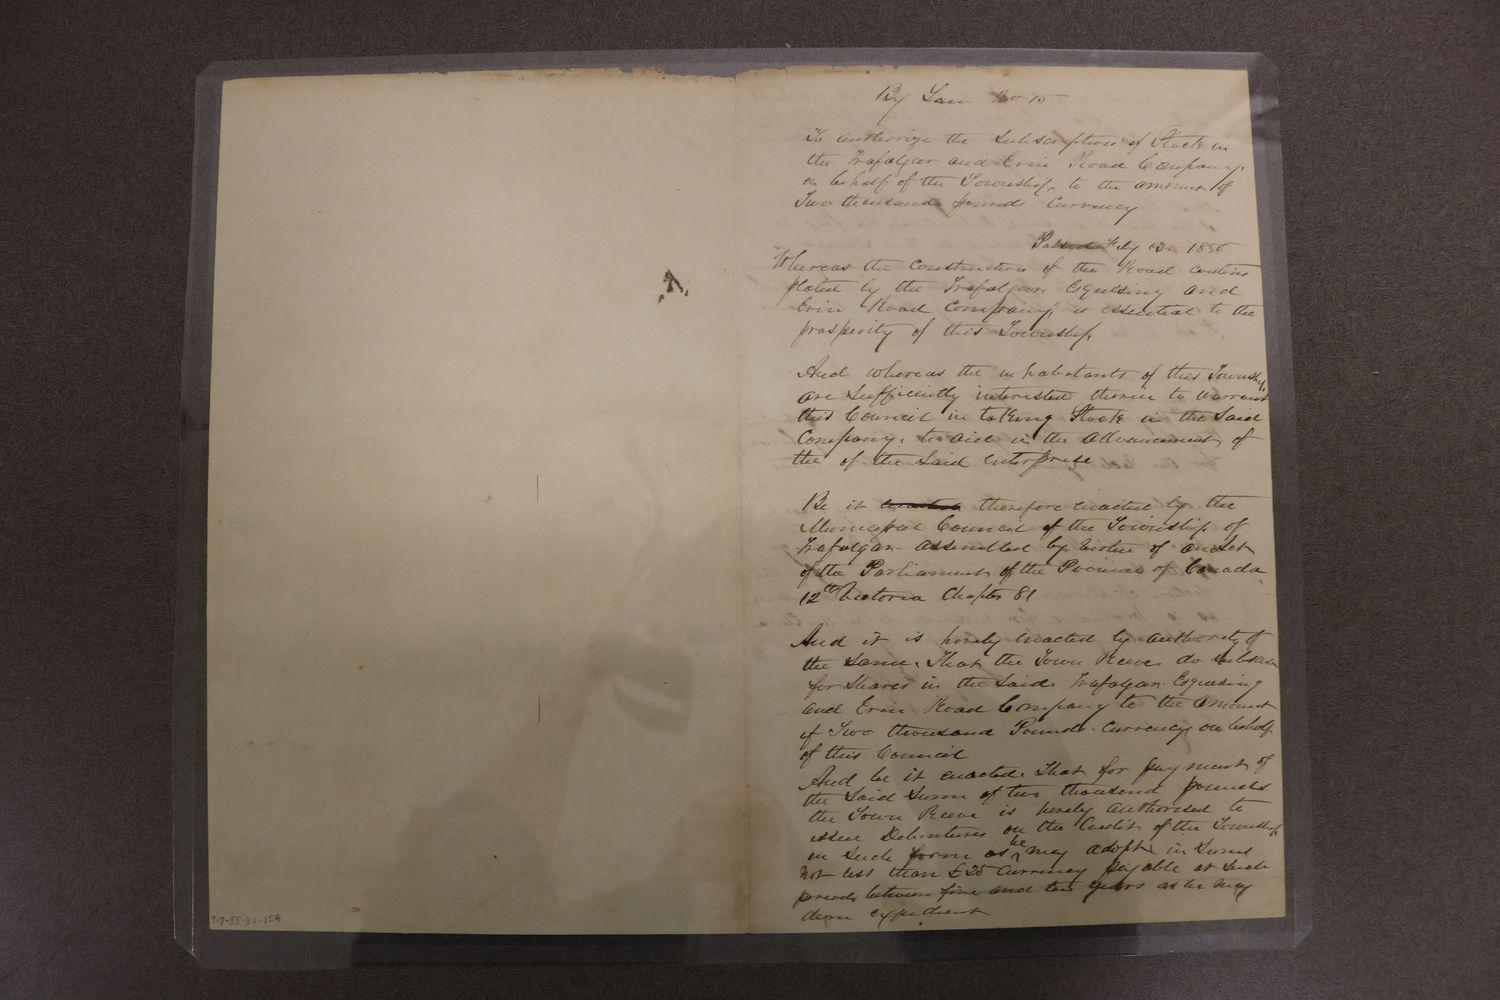 By Law No 15
To authorize the Subscription of Stock in
the Trafalgar and Erin Road Company,
on behalf of the Township, to the amount of
Two thousand pounds Currency
Passed Feby 1850
Whereas the Construction of the Road contem
plated by the Trafalgar Esquesing and
Erin Road Company, is essential to the
prosperity of this Township,
And whereas the inhabitants of this Township,
are Sufficiently interested therein to warrant
this Council in taking Stock in the Said
Company, to aid in the advancement of
the of the Said enterprize
Be it therefore enacted by the
Municipal Council of the Township of
Trafalgar assembled by virtue of an Act
of the Parliament of the Province of Canada
12th Victoria Chapter 81
And it is hereby enacted by authority of
the Same, That the Town Reeve do subscribe
for Shares in the Said Trafalgar Esquesing
and Erin Road Company to the amount
of Two thousand Pounds Currency on behalf
of this Council
And be it enacted. That for payment of
the Said Sum of two thousand pounds
the Town Reeve is hereby authorised to
issue Debentures on the Credit of the Township
in Such form as he may adopt in Sums
not less than £25 Currency payable at Such
periods between five and ten years as he may
deem expedient